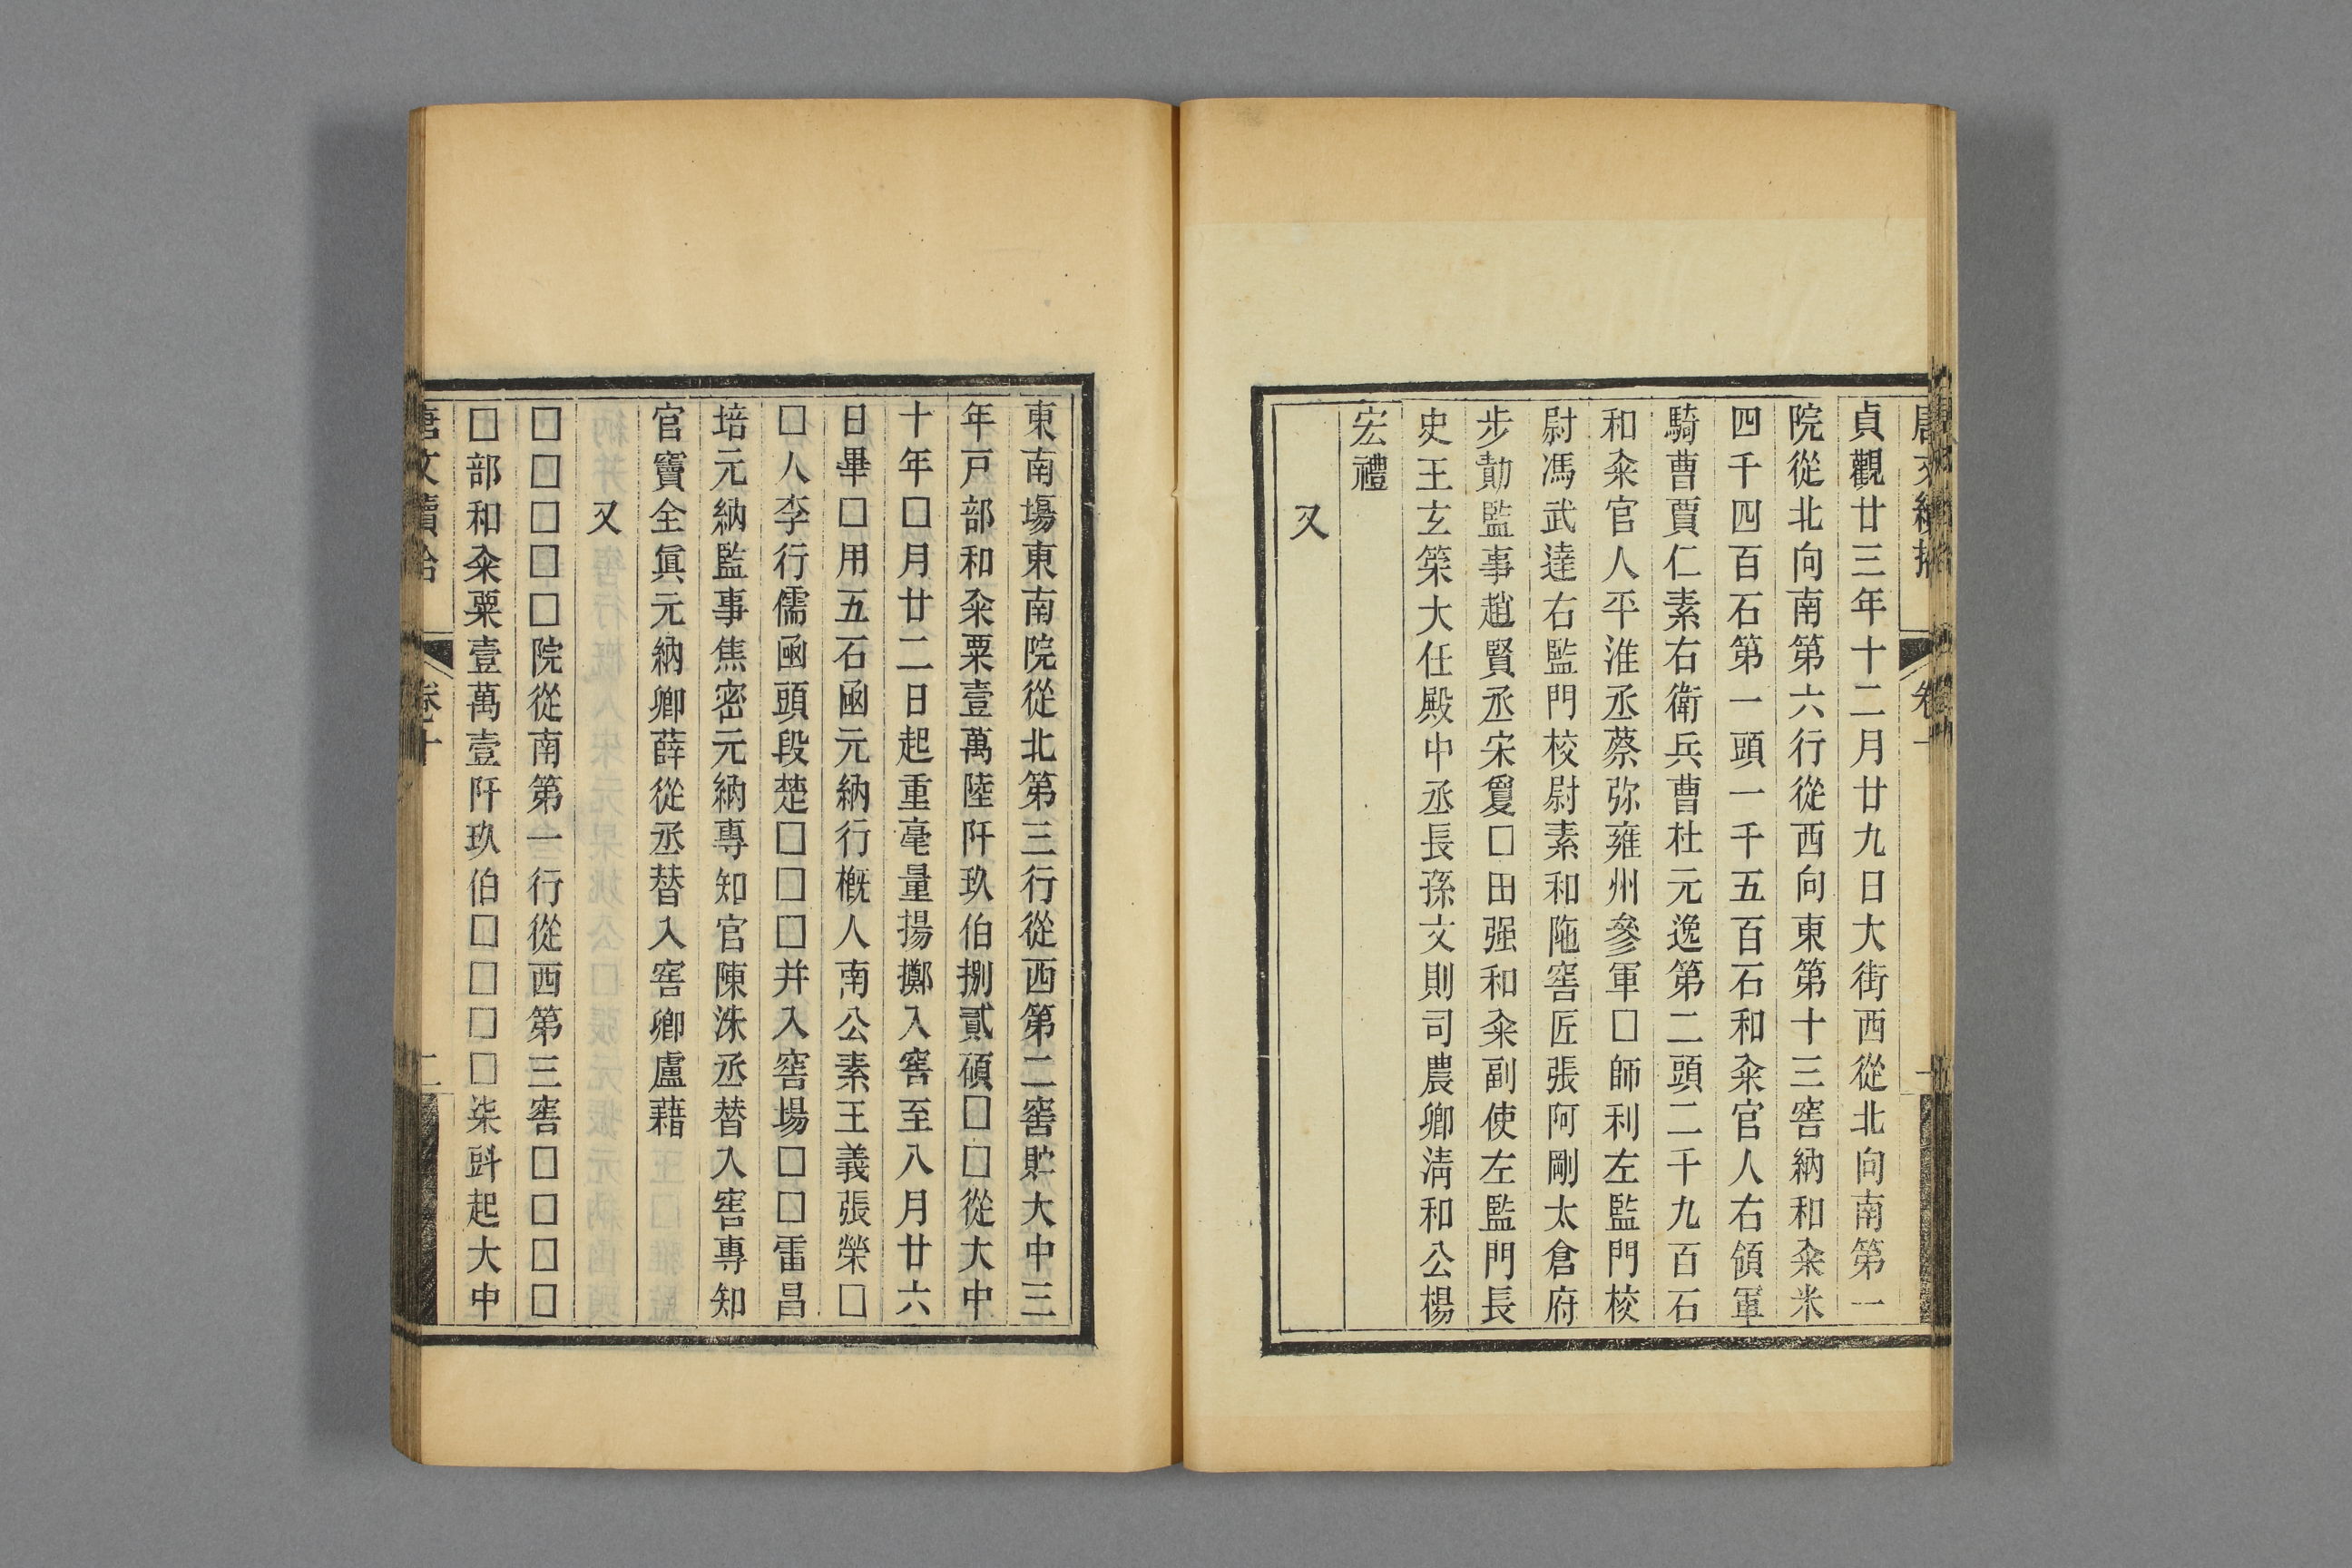 貞觀廿三年十二月廿九日大街西從北向南第一
院從北向南第六行從西向東第十三窖納和籴米
四千四百石第一頭一千五百石和籴官人右領軍
騎曹賈仁素右衛兵曹杜元逸第二頭二千九百石
和籴官人平淮丞蔡弥雍州參軍□師利左監門校
尉馮武達右監門校尉素和陁窖匠張阿剛太倉府
步勣監事趙賢丞宋敻□田强和籴副使左監門長
史王玄䇿大任殿中丞長孫文則司農卿淸和公楊
宏禮
又
東南塲東南院從北第三行從西第二窖貯大中三
年戸部和籴粟壹萬陸阡玖伯捌貳碩□□從大中
十年□月廿二日起重毫量揚擲入窖至八月廿六
日畢□用五石凾元納行槪人南公素王義張榮□
□人李行儒凾頭段楚□□□并入窖場□□雷昌
培元納監事焦密元納專知官陳洙丞替入窖專知
官竇全眞元納卿薛從丞替入窖卿盧藉
又
□□□□□院從南第一行從西第三窖□□□□
□部和籴粟壹萬壹阡玖伯□□□□柒㪷起大中
唐文續拾 卷十 二